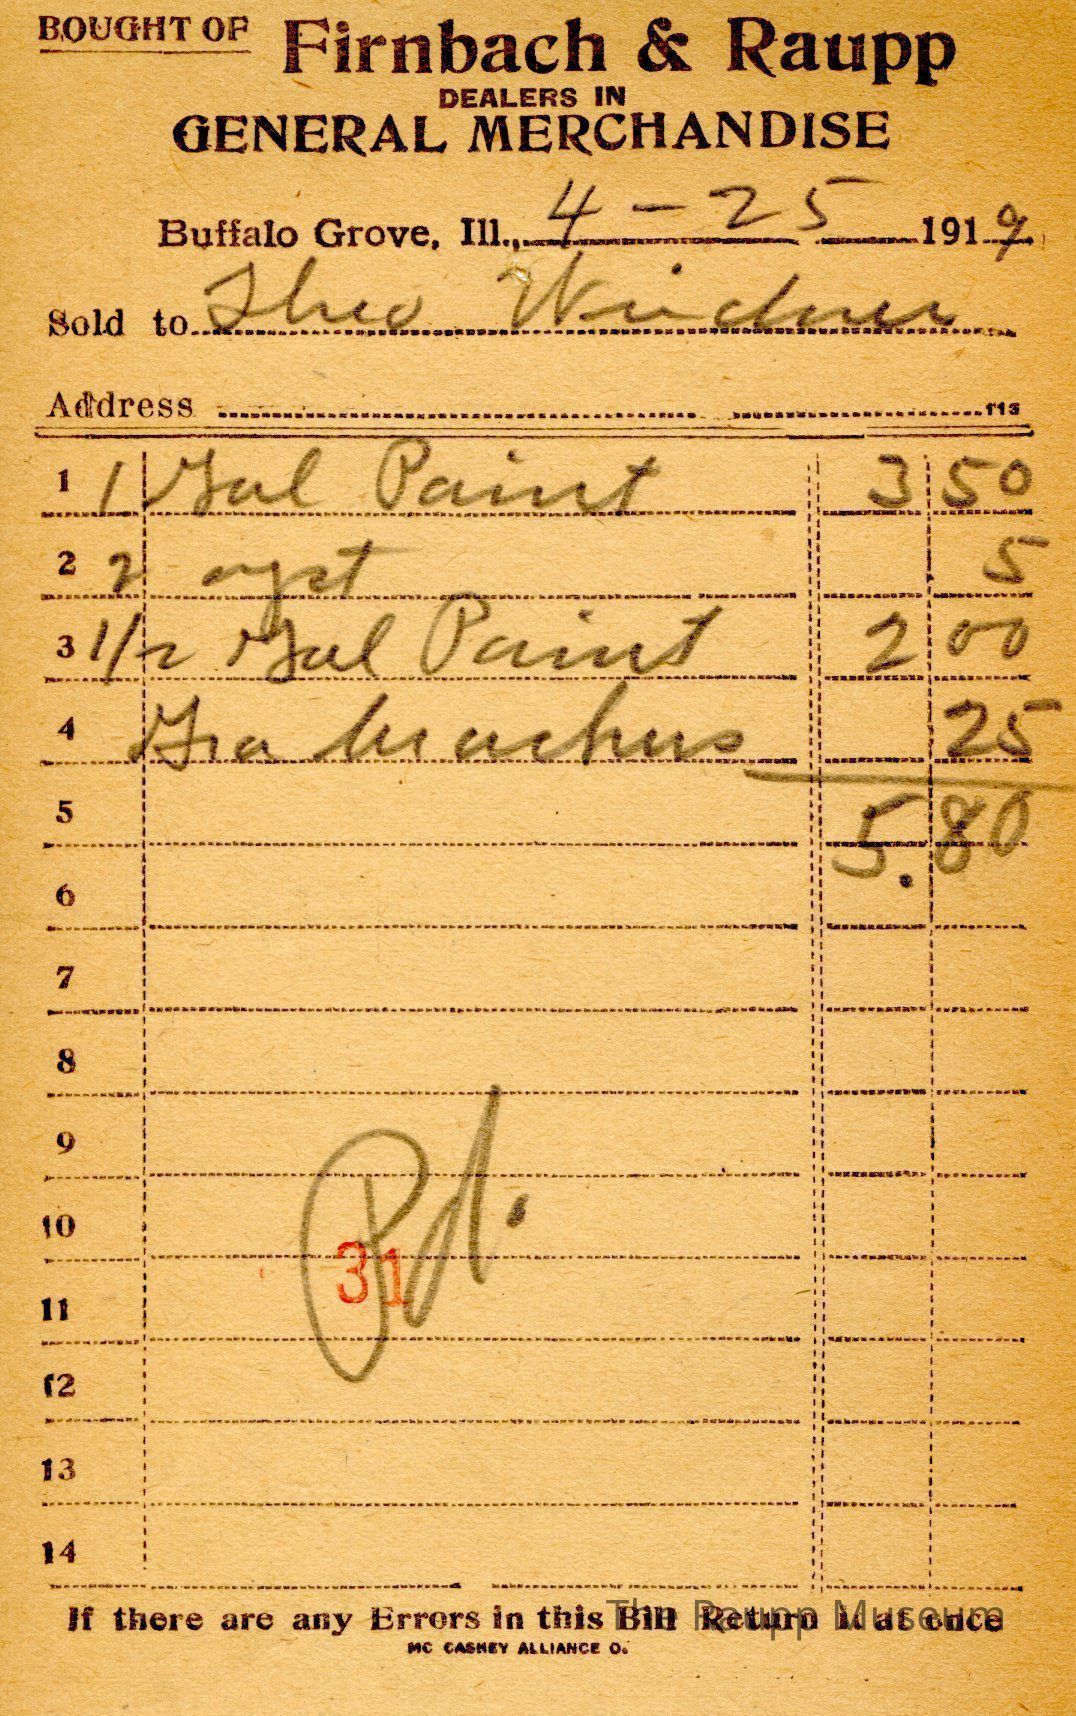 BOUGHT OF Firnbach & Raupp
DEALERS IN
GENERAL MERCHANDISE
Buffalo Grove, Ill., 4 - 25 1919
Sold to Theo
Address
1 1 Gal Paint 3 50
2 2 5
3 1/2 Gal Paint 2 00
4 25
5 5.80
6
7
8
9
10 Pd.
31
11
12
13
14
If there are any Errors in this Bill Return it at once
The Raupp Museum
MC CASKEY ALLIANCE O.